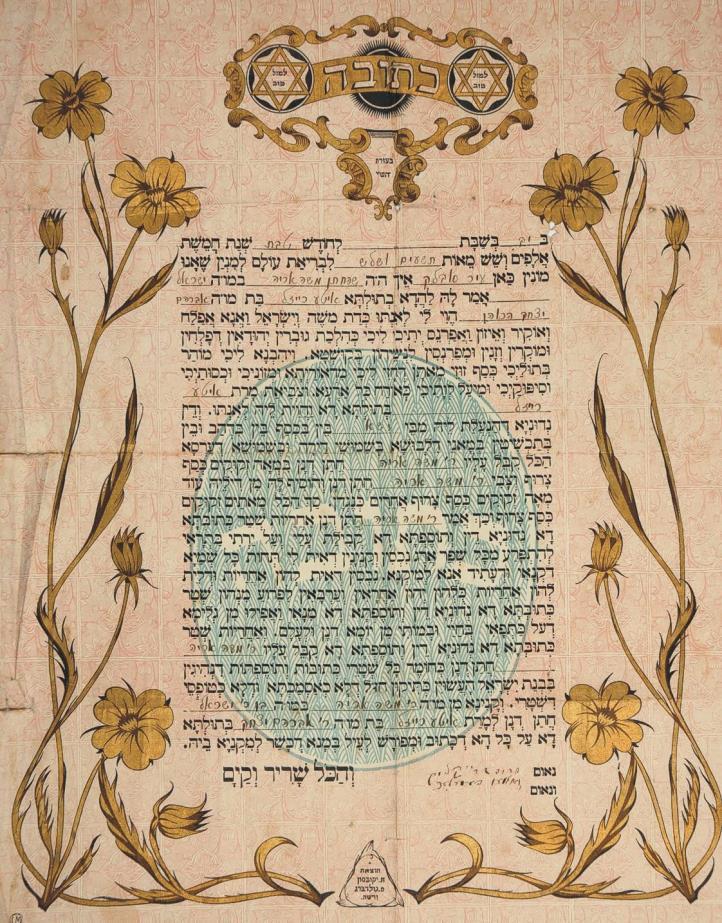 למזל
טוב
כתובה
למזל
טוב
בעזרת
השי"
ב בשבת לחודש טבת שנת חמשת
אלפים ושש מאות תשעים ושלש לבריאת עולם למנין שאנו
מונין כאן עיר איך הח' משה אריה במוה' ישראל
אמר לה להדא בתולתא איטע רייזל בת מוה' אברהם
יצחק הכהן הוי לי לאנתו כדת משה וישראל ואנא אפלח
ואוקיר ואיזון ואפרנס יתיכי ליכי כהלכת גוברין יהודאין דפלחין
ומוקרין וזנין ומפרנסין לנשיהון בקושטא. ויהבנא ליכי מוהר
בתוליכי כסף זוזי מאתן דחזי ליכי מדאורייתא ומזוניכי וכסותיכי
וסיפוקיכי ומיעל לותיכי כאורח כל ארעא. וצביאת מרת איטע
רייזל בתולתא דא והוית ליה לאנתו. ודין
נדוניא דהנעלת ליה מבי נשא בין בכסף בין בדהב ובין
בתכשיטין במאני דלבושא בשמושי דירה ובשמושי דערסא
הכל קבל עליו ר' משה אריה חתן דנן במאה זקוקים כסף
צרוף וצבי ר' משה אריה חתן דנן והוסיף לה מן דיליה עוד
מאה זקוקים כסף צרוף אחרים כנגדן סך הכל מאתים זקוקים
כסף צרוף וכך אמר ר' משה אריה חתן דנן אחריות שטר כתובתא
דא נדוניא דין ותוספתא דא קבילת עלי ועל ירתי בתראי
להתפרע מכל שפר ארג נכסין וקנינין דאית לי תחות כל שמיא
דקנאי ודעתיד אנא למקנא. נכסין דאית להון אחריות ודלית
להון אחריות כלהון יהון אחראין וערבאין לפרוע מנהון שטר
כתובתא דא נדוניא דין ותוספתא דא מנאי ואפילו מן גלימא
דעל כתפאי בחיי ובמותי מן יומא דנן ולעלם. ואחריות שטר
כתובתא דא נדוניא דין ותוספתא דא קבל עליו ר' משה אריה
חתן דנן כחומר כל שטרי כתובות ותוספתות דנהיגין
בבנת ישראל העשוין כתיקון חז"ל דלא כאסמכתא ודלא כטופסי
דשטרי. וקנינא מן מוה' ר' משה אריה במוה' ר' ישראל
חתן דנן למרת איטע רייזל בת מוה' ר' אברהם יצחק בתולתא
דא על כל הא דכתוב ומפורש לעיל במנא דכשר למקניא ביה.
והכל שריר וקים
נאום
ונאום
הוצאת
ח. יקובסון
מ. גולדברג
ורשה.